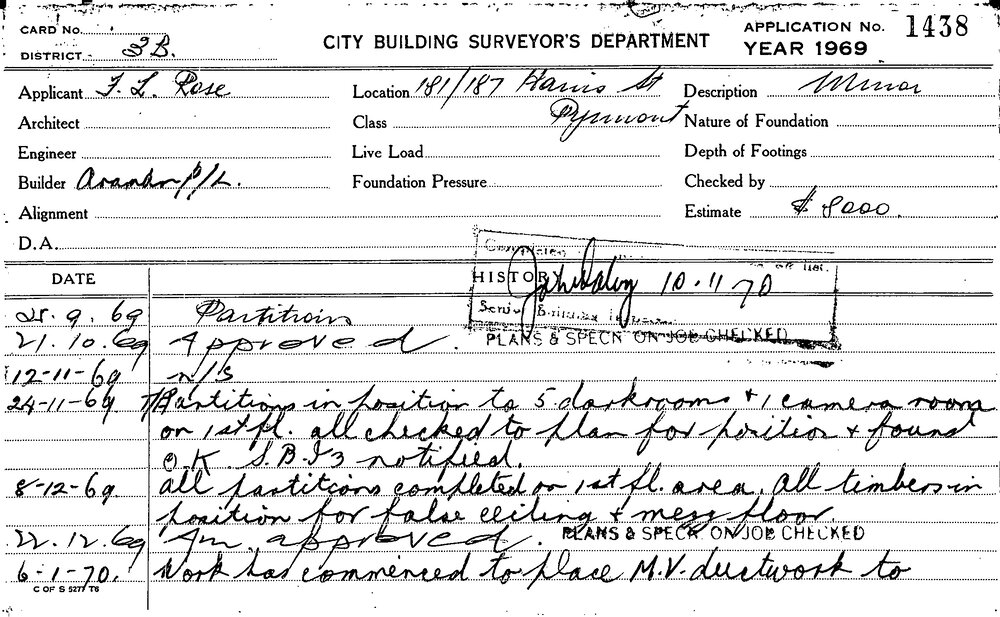 CARD No.
DISTRICT 3B.
CITY BUILDING SURVEYOR'S DEPARTMENT
APPLICATION No. 1438
YEAR 1969
Applicant F. L. Rose
Location 181/187 Harris St Pyrmont
Description Minor
Architect
Class
Nature of Foundation
Engineer
Live Load
Depth of Footings
Builder P/L.
Foundation Pressure
Checked by
Alignment
Estimate $ 8000.
D.A.
Completed
DATE
HISTORY
10.11.70
Senior Building
25.9.69 Partitions
PLANS & SPECN ON JOB CHECKED
21.10.69 Approved.
12-11-69 n/s
24-11-69 Partitions in position to 5 darkrooms + 1 camera room
on 1st fl. all checked to plan for position + found
O.K. S.B.I 3 notified.
8-12-69. All partitions completed on 1st fl. area. All timbers in
position for false ceiling + mezz floor
22.12.69 Am. approved. PLANS & SPECN. ON JOB CHECKED
6-1-70. Work has commenced to place M.V. ductwork to
C OF S 5277 T6